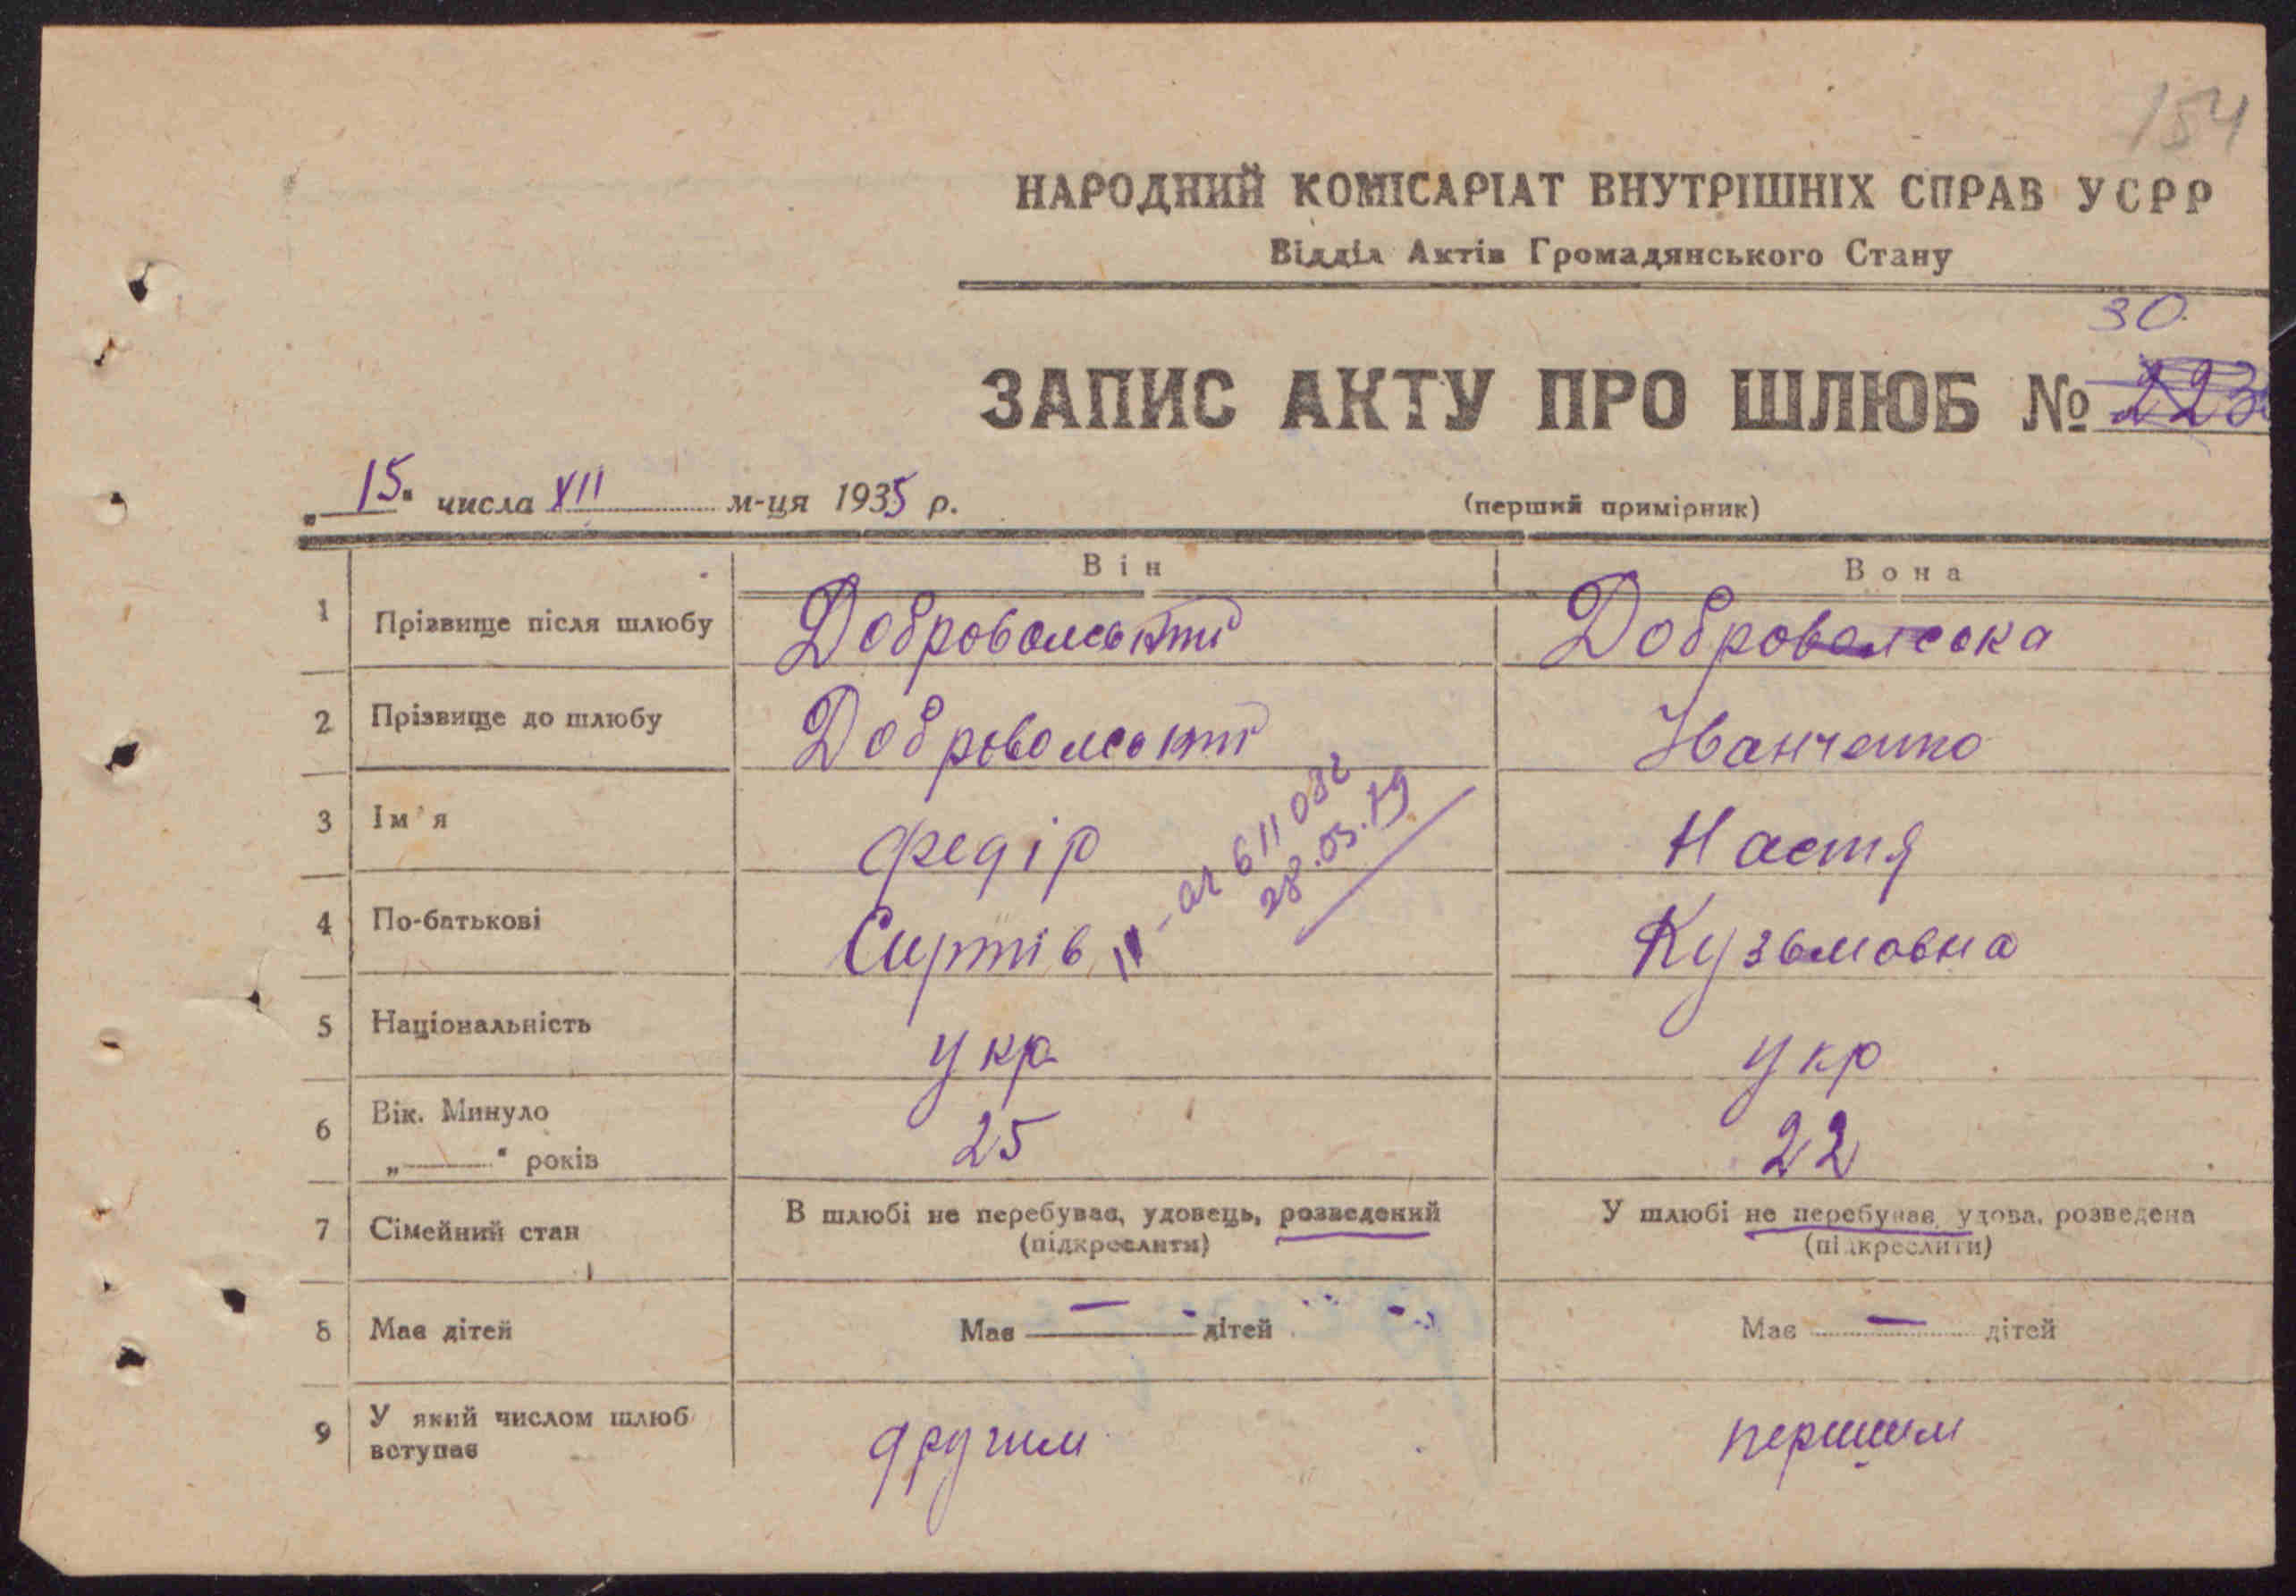 154
НАРОДНИЙ КОМІСАРІАТ ВНУТРІШНІХ СПРАВ УСРР
Відділ Актів Громадянського Стану
30
ЗАПИС АКТУ ПРО ШЛЮБ № 223
„15" числа XII м-ця 1935 р. (перший примірник)
Він Вона
1 Прізвище після шлюбу Добровольський Добровольська
2 Прізвище до шлюбу Добровольський Іванченко
3 Ім'я Федір Настя
611082
28.03.79
4 По-батькові Кузьмовна
5 Національність укр укр
6 Вік. Минуло 25 22
„———" років
7 Сімейний стан В шлюбі не перебуває, удовець, розведений У шлюбі не перебуває, удова, розведена
(підкреслити) (підкреслити)
8 Має дітей Має — дітей Має — дітей
9 У який числом шлюб другим першим
вступає